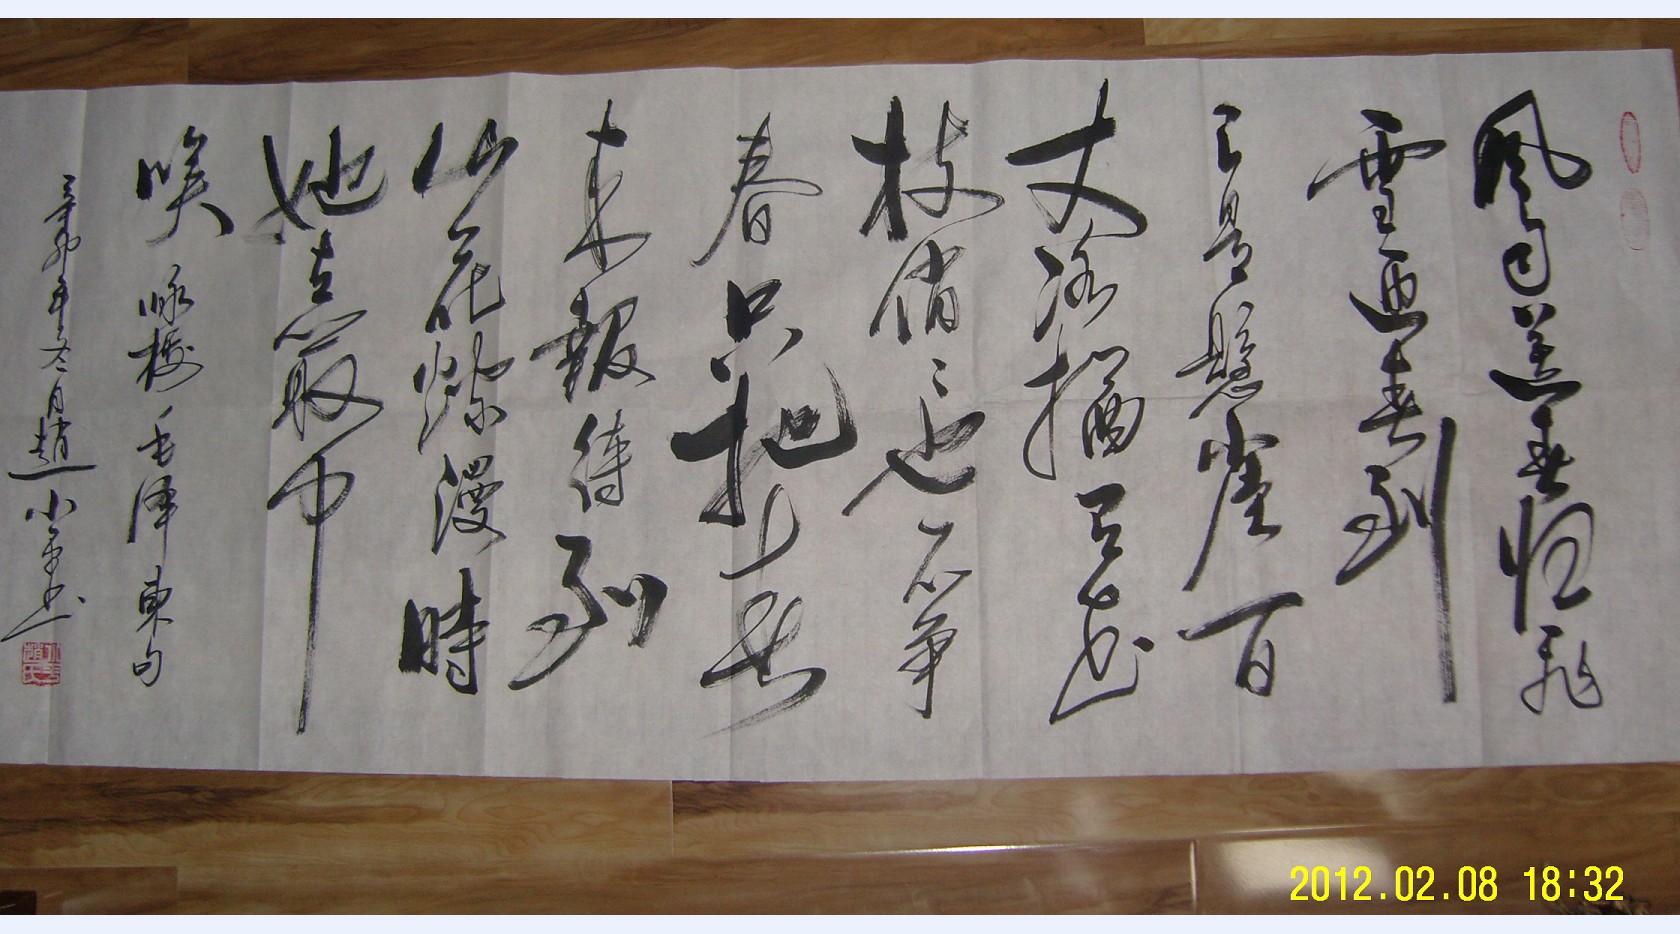 風雨送春归飛
雪迎春到
已是懸崖百
丈冰猶有花
枝俏々也不争
春只把春
来報待到
山花爛漫時
她在叢中
咲 咏梅 毛澤東句
辛卯年冬月趙小平书